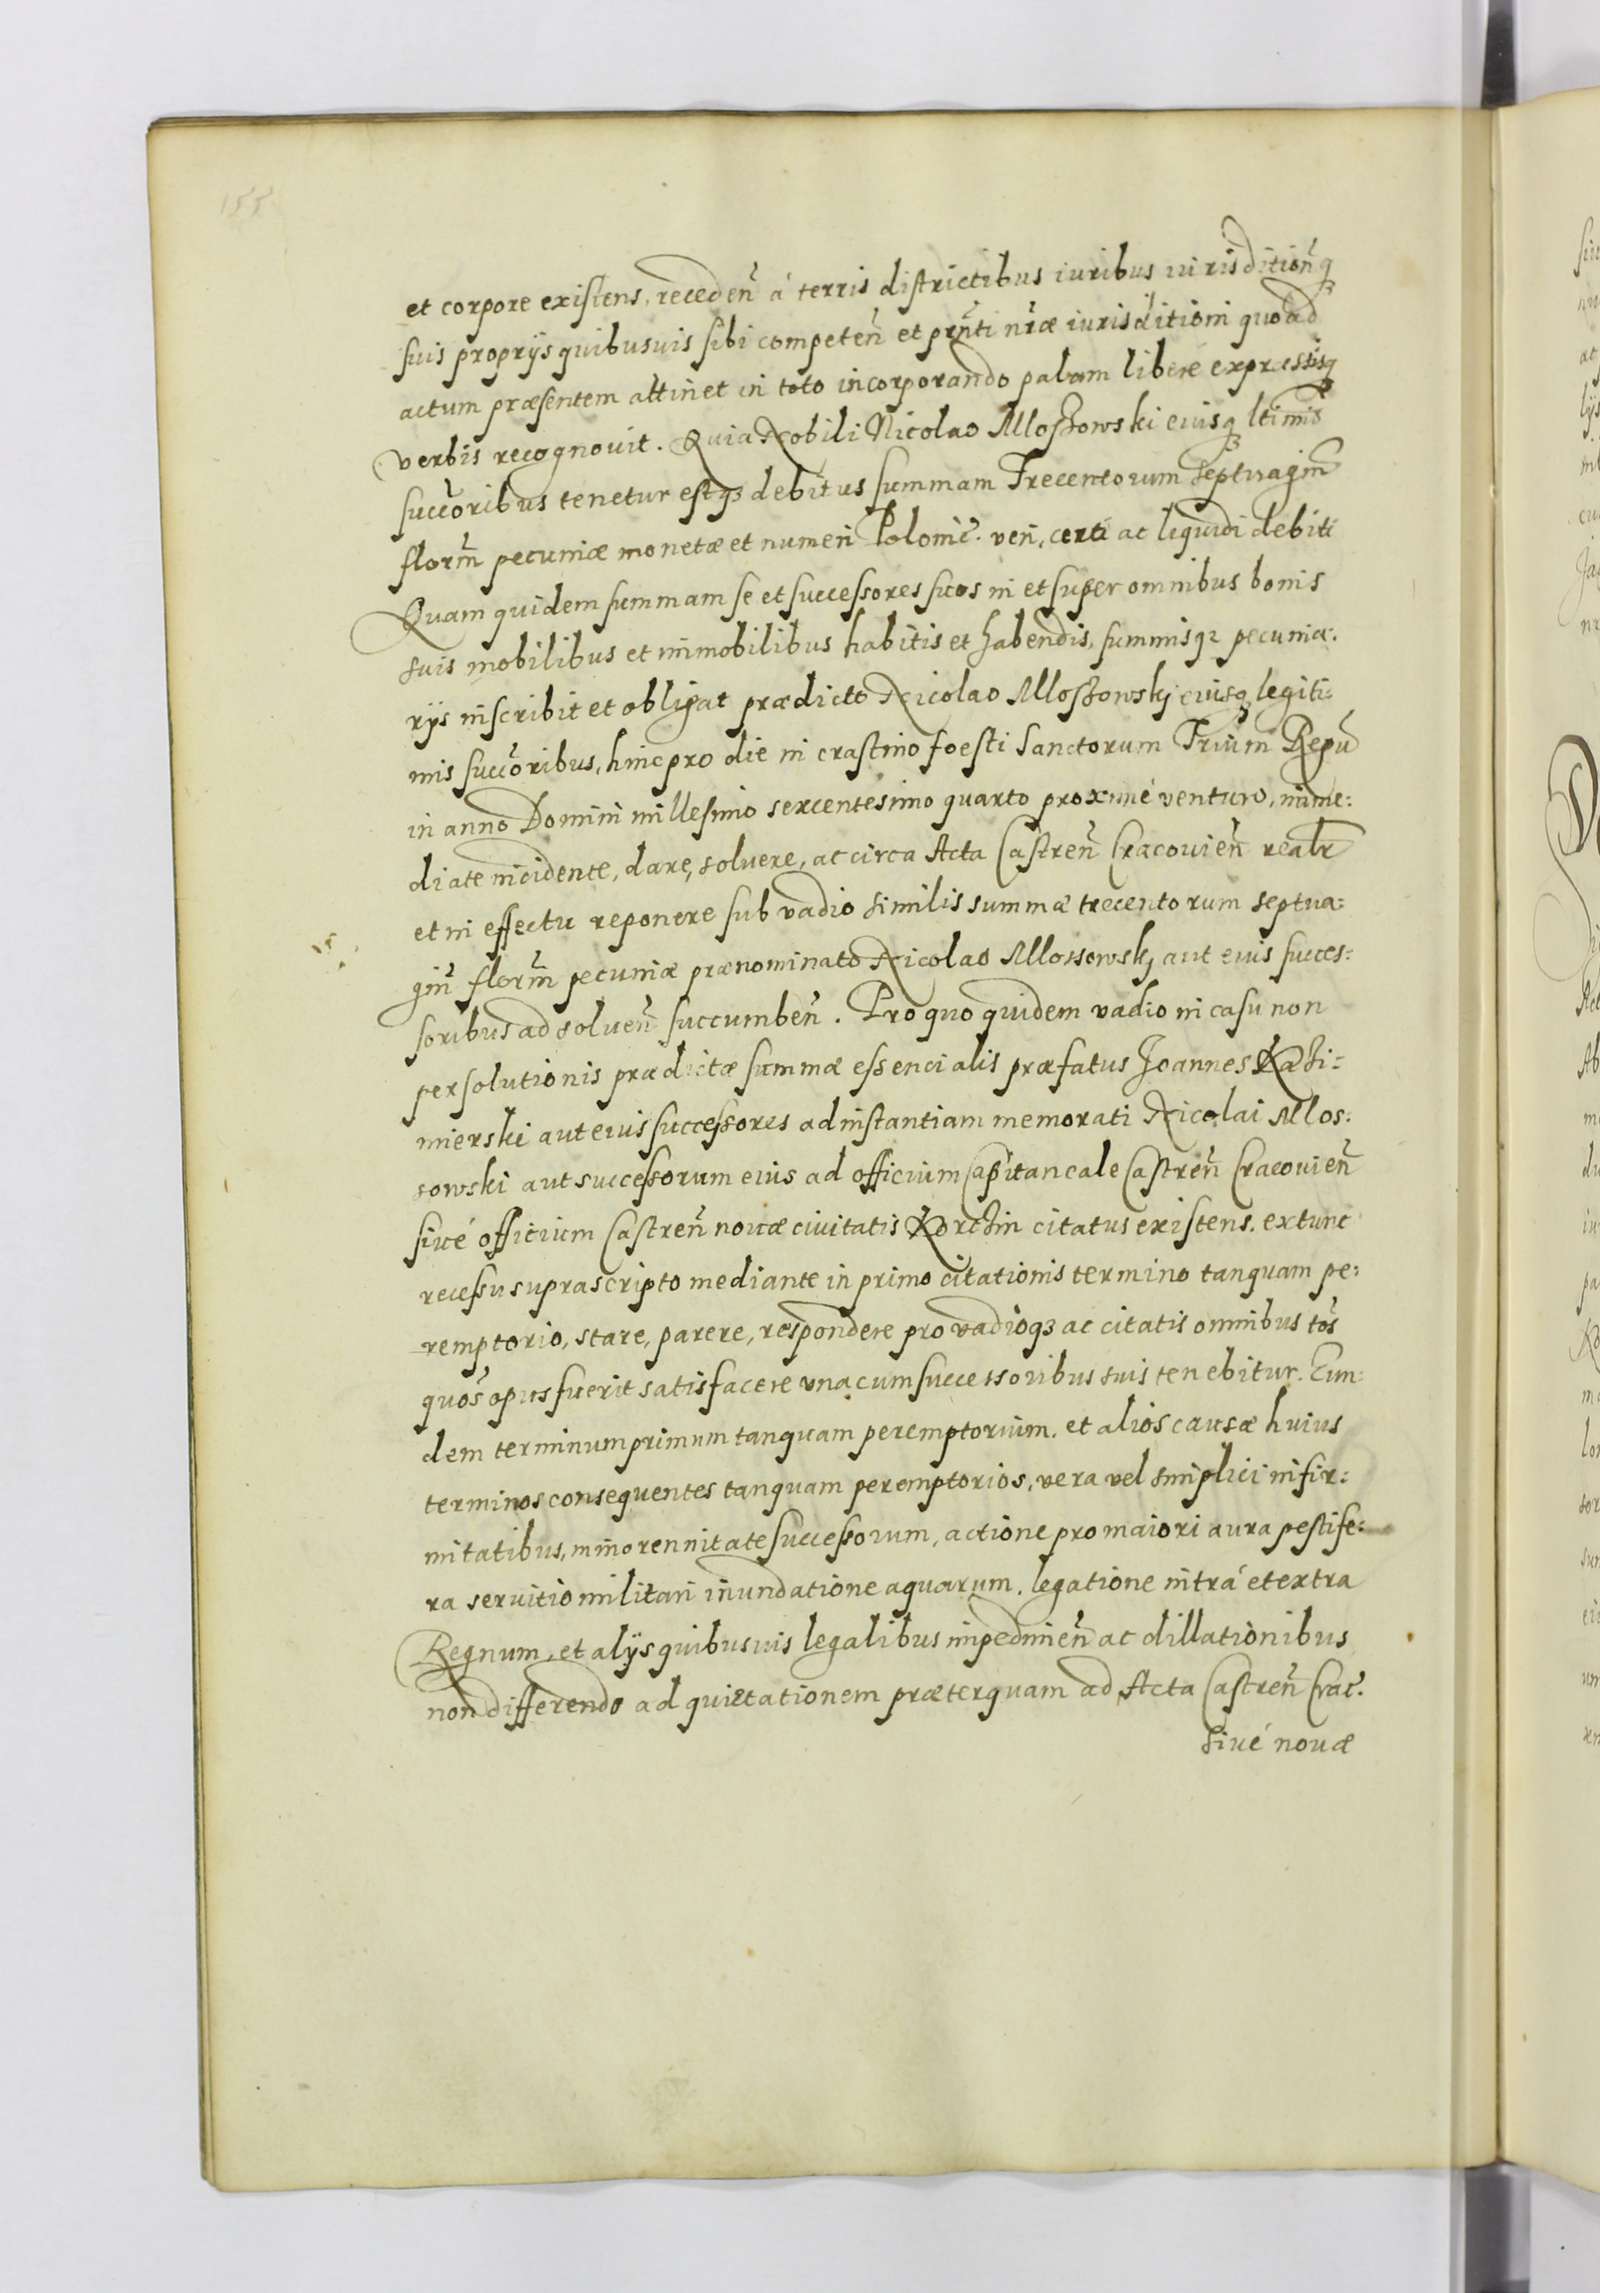 155
et corpore existens, receden̄ á terris districtibus iuribus iurisditioñq
suis proprÿs quibusuis sibi competen̄ et pn̄ti nr̄æ iurisditioni quoad
actum præsentem attinet in toto incorporando palam liberé expressisq
verbis recognouit. Quia Nobili Nicolao Mloszowski eiusq ltimis
succōribus tenetur estqꝫ debitus summam Trecentorum Septuagin̄
florm̄ pecuniæ monetæ et numeri Polonic̄. ven, certi ac liquidi debiti
Quam quidem summam se et successores suos in et super omnibus bonis
suis mobilibus et immobilibus habitis et habendis, summisqꝫ pecunia:
rÿs inscribit et obligat prædicto Nicolao Mloszowskj eiusq legiti:
mis succōribus, hinc pro die in crastino foesti Sanctorum Trium Regū
in anno Domini millesimo sexcentesimo quarto proximé venturo, imme:
diate incidente, dare, soluere, ac circa Acta Castren̄ Cracouien̄ realr
et in effectu reponere sub vadio similis summæ trecentorum septua:
gin̄ florm̄ pecuniæ prænominato Nicolao Mlossowskj aut eius succes:
soribus ad soluen̄ succumben̄. Pro quo quidem vadio in casu non
persolutionis prædictæ summæ essencialis præfatus Joannes Kazi:
mierski aut eius successores ad instantiam memorati Nicolai Mlos:
sowski aut successorum eius ad officium Capitaneale Castren̄ Cracouien̄
siué officium Castren̄ nouæ ciuitatis Korchin citatus existens. extunc
recessu suprascripto mediante in primo citationis termino tanquam pe:
remptorio, stare, parere, respondere pro vadioqꝫ ac citatis omnibus tōs
quōs opus fuerit satisfacere vna cum successoribus suis tenebitur. Eun:
dem terminum primum tanquam peremptorium. et alios causæ huius
terminos consequentes tanquam peremptorios, vera vel simplici infir:
mitatibus, minorennitate successorum, actione pro maiori aura pestife:
ra seruitio militari inundatione aquarum. legatione intrá et extra
Regnum, et alÿs quibusuis legalibus impedimen̄ ac dillationibus
non differendo ad quietationem præterquam ad Acta Castren̄ Crac̄.
siué nouæ